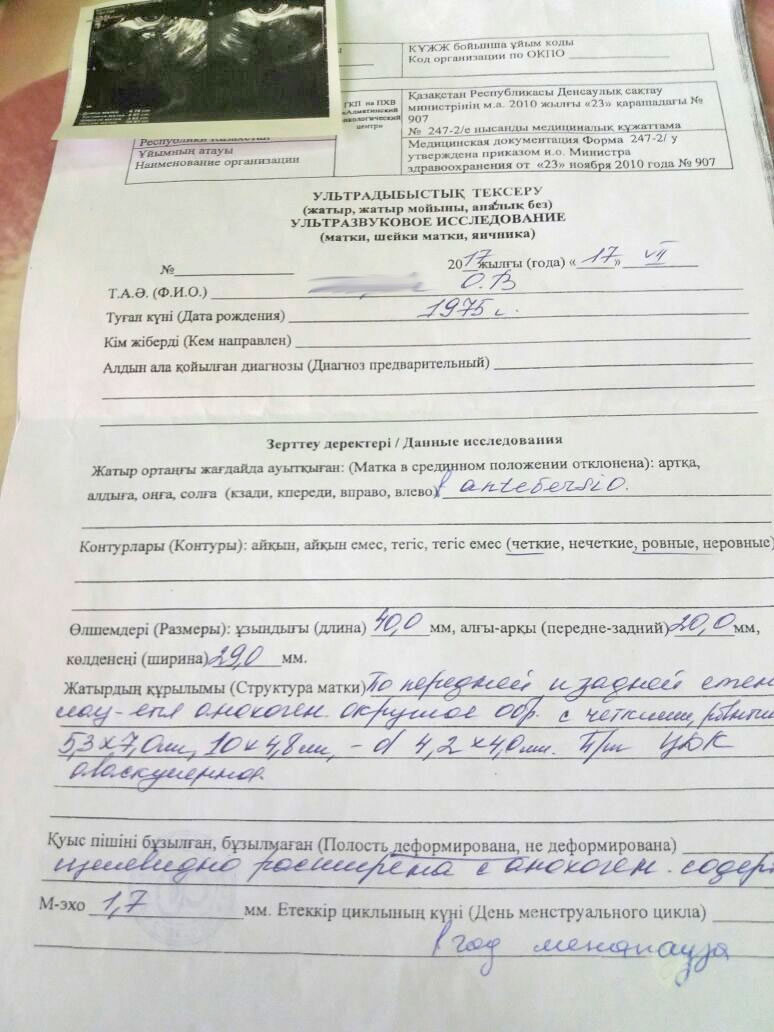 КҰЖЖ бойынша ұйым коды
Код организации по ОКПО
ГКП на ПХВ
«Алматинский
онкологический
центр»
Қазақстан Республикасы Денсаулық сақтау
министрінің м.а. 2010 жылғы «23» қарашадағы №
907
№ 247-2/е нысанды медициналық құжаттама
Медицинская документация Форма 247-2/ у
утверждена приказом и.о. Министра
здравоохранения от «23» ноября 2010 года № 907
Республики Казахстан
Ұйымның атауы
Наименование организации
УЛЬТРАДЫБЫСТЫҚ ТЕКСЕРУ
(жатыр, жатыр мойыны, аналық без)
УЛЬТРАЗВУКОВОЕ ИССЛЕДОВАНИЕ
(матки, шейки матки, яичника)
№ 2017 жылғы (года) «17» VII
Т.А.Ә. (Ф.И.О.) О.В
Туған күні (Дата рождения) 1975 г.
Кім жіберді (Кем направлен)
Алдын ала қойылған диагнозы (Диагноз предварительный)
Зерттеу деректері / Данные исследования
Жатыр ортаңғы жағдайда ауытқыған: (Матка в срединном положении отклонена): артқа,
алдыға, оңға, солға (кзади, кпереди, вправо, влево) в anteversio.
Контурлары (Контуры): айқын, айқын емес, тегіс, тегіс емес (четкие, нечеткие, ровные, неровные)
Өлшемдері (Размеры): ұзындығы (длина) 40,0 мм, алғы-арқы (передне-задний) 20,0 мм,
көлденеңі (ширина) 29,0 мм.
Жатырдың құрылымы (Структура матки) По передней и задней стен
анэхоген. округлое обр. с четкими, ровными
5,3х7,0мм, 10х4,8мм, - d 4,2х4,0мм. При ЦДК
аваскулярное.
Қуыс пішіні бұзылған, бұзылмаған (Полость деформирована, не деформирована)
щелевидно расширена с анэхоген. содерж
М-эхо 1,7 мм. Етеккір циклының күні (День менструального цикла)
1 год менопауза